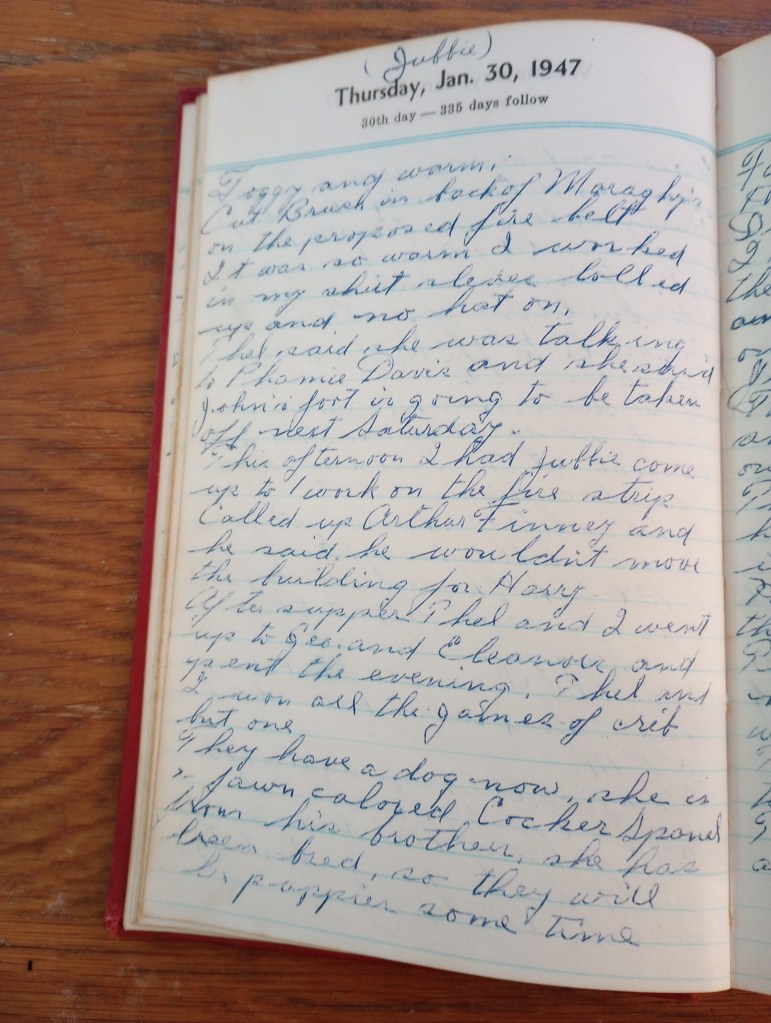 (Jubbie)
Thursday, Jan. 30, 1947
30th day — 335 days follow
Foggy and warm.
Cut Brush in back of
on the proposed fire belt
It was so warm I worked
in my shirt sleves lolled
up and no hat on.
Thel said she was talking
to Phamie Davis and she said
John's foot is going to be taken
off next Saturday.
This afternoon I had Jubbie come
up to work on the fire strip
Called up Arthur Finney and
he said he wouldn't move
the building for Harry
After supper Thel and I went
up to Geo. and Eleanor and
spent the evening. Thel and
I won all the games of crib
but one
They have a dog now, she is
a fawn colored Cocker Spanel
from his brother, she has
been bred, so they will
puppies some time